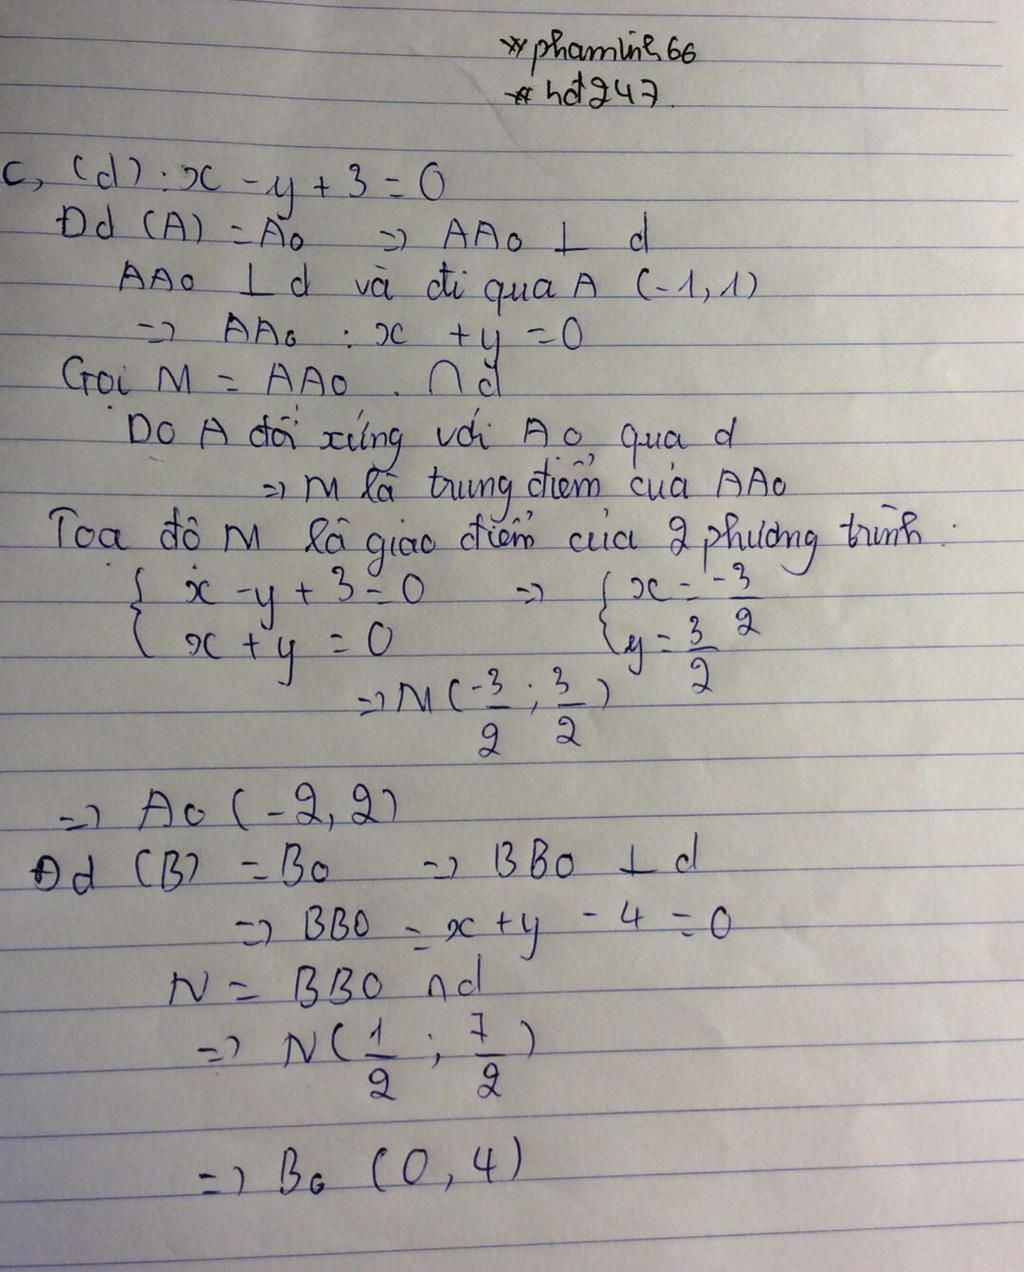 *phamlinh66
*hđ247.
c, (d): x - y + 3 = 0
Đd (A) = Ao => AAo ⊥ d
AAo ⊥ d và đi qua A (-1,1)
=> AAo : x + y = 0
Gọi M = AAo ∩ d
Do A đối xứng với Ao qua d
=> M là trung điểm của AAo
Tọa độ M là giao điểm của 2 phương trình:
{ x - y + 3 = 0 => { x = -3/2
{ x + y = 0 { y = 3/2
=> M (-3/2 ; 3/2)
=> Ao (-2, 2)
Đd (B) = Bo => BBo ⊥ d
=> BBo = x + y - 4 = 0
N = BBo ∩ d
=> N (1/2 ; 7/2)
=> Bo (0, 4)